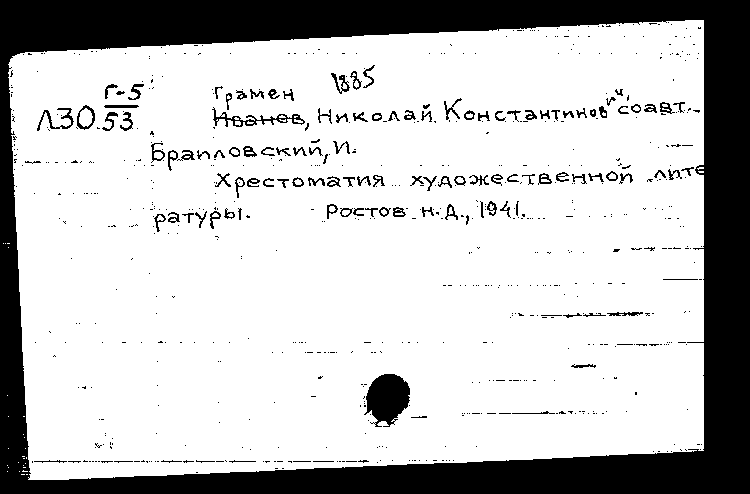 Г-5 Грамен 1885
Л30 53 Иванов, Николай Константинов ич, соавт.
Браиловский, И.
Хрестоматия художественной лите
ратуры. Ростов н.Д., 1941.